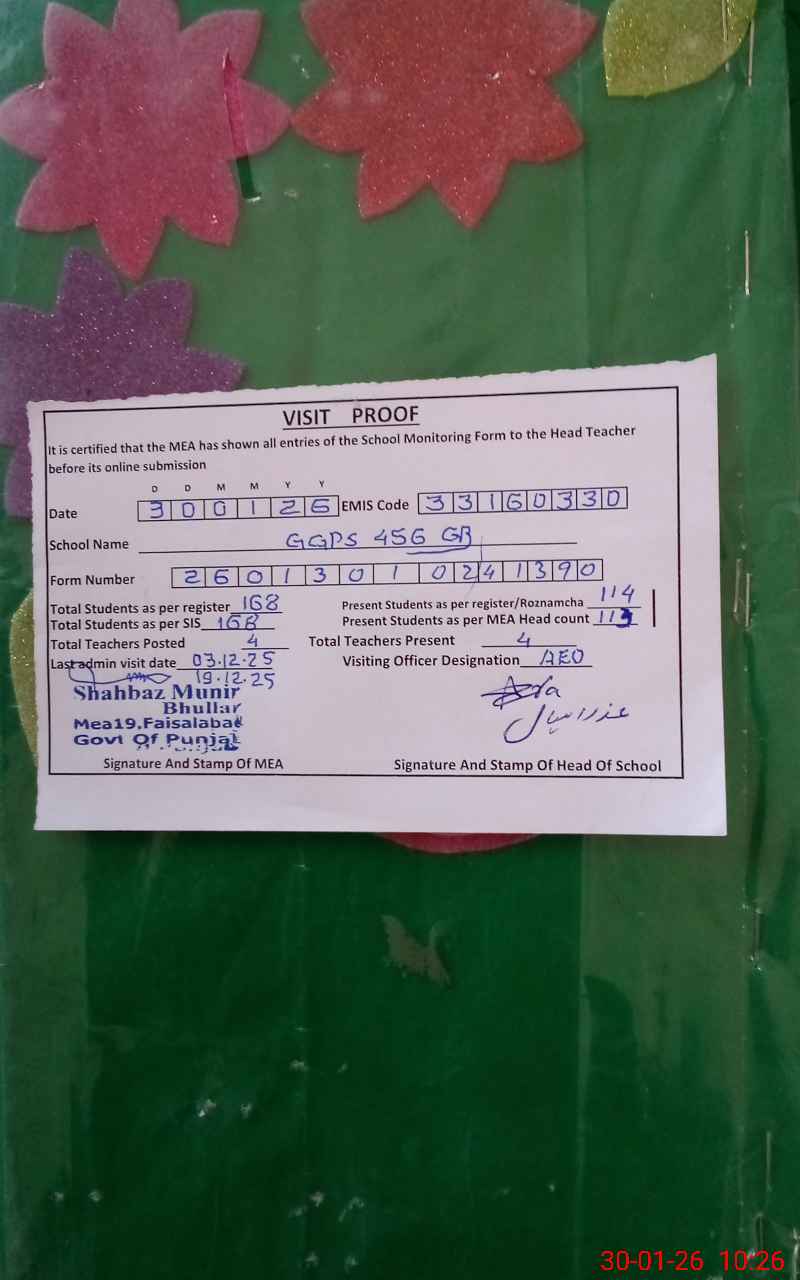 VISIT PROOF
It is certified that the MEA has shown all entries of the School Monitoring Form to the Head Teacher
before its online submission
D D M M Y Y
Date 3 0 0 1 2 6 EMIS Code 3 3 1 6 0 3 3 0
School Name GGPS 456 GB
Form Number 2 6 0 1 3 0 1 0 2 4 1 3 9 0
Total Students as per register 168 Present Students as per register/Roznamcha 114
Total Students as per SIS 168 Present Students as per MEA Head count 113
Total Teachers Posted 4 Total Teachers Present 4
Last admin visit date 03.12.25 Visiting Officer Designation AEO
19.12.25
Shahbaz Munir
Bhullar
Mea19,Faisalabad
Govt Of Punjab
عذرا سیال
Signature And Stamp Of MEA Signature And Stamp Of Head Of School
30-01-26 10:26